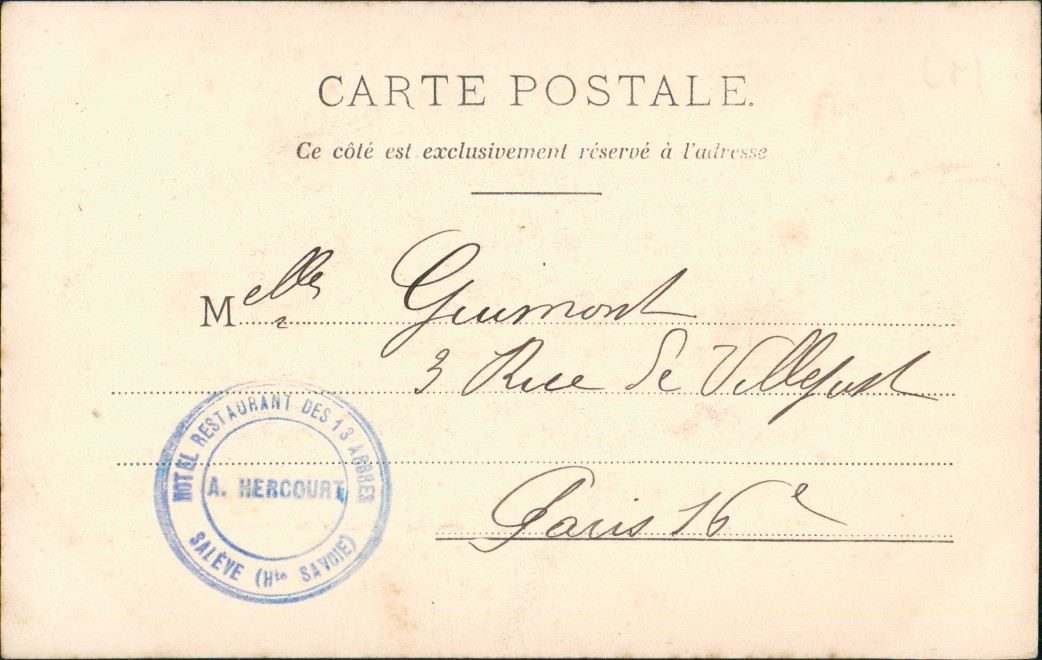 CARTE POSTALE.
Ce côté est exclusivement réservé à l'adresse
Melle Guimont
3 Rue de Villejust
Paris 16e
HOTEL RESTAURANT DES 13 ARBRES
A. HERCOURT
SALÈVE (Hte SAVOIE)